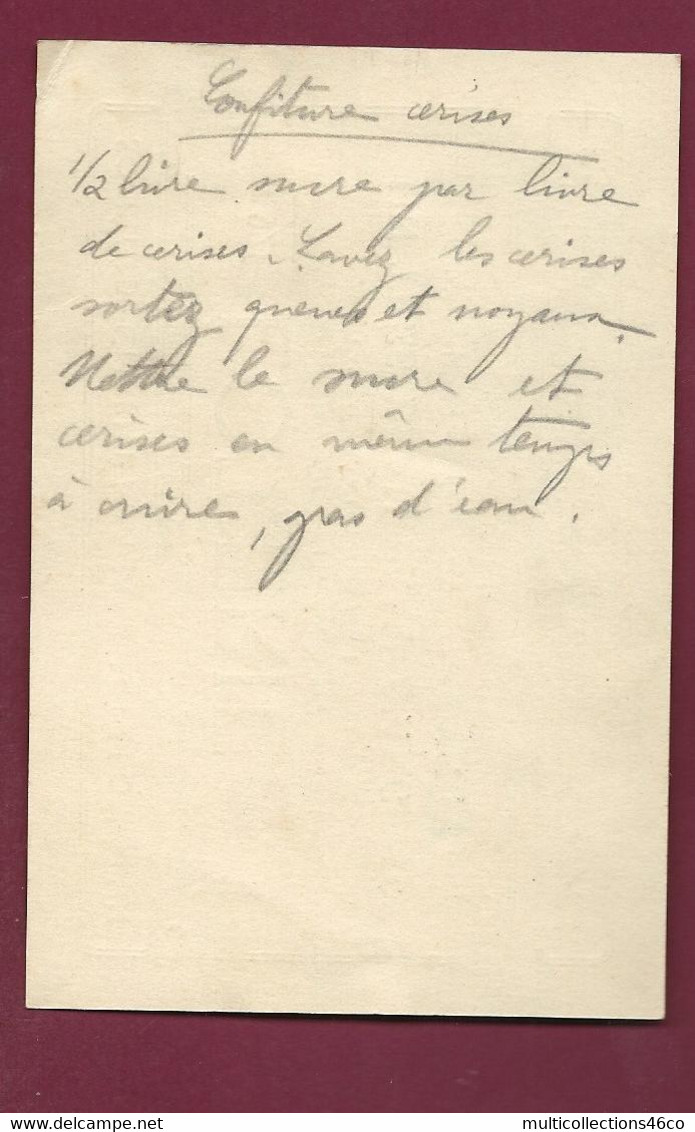 Confiture cerises
1/2 livre sucre par livre
de cerises. Lavez les cerises
sortez queues et noyaux.
Mettre le sucre et
cerises en même temps
à cuire, pas d'eau.
delcampe.net
multicollections46co